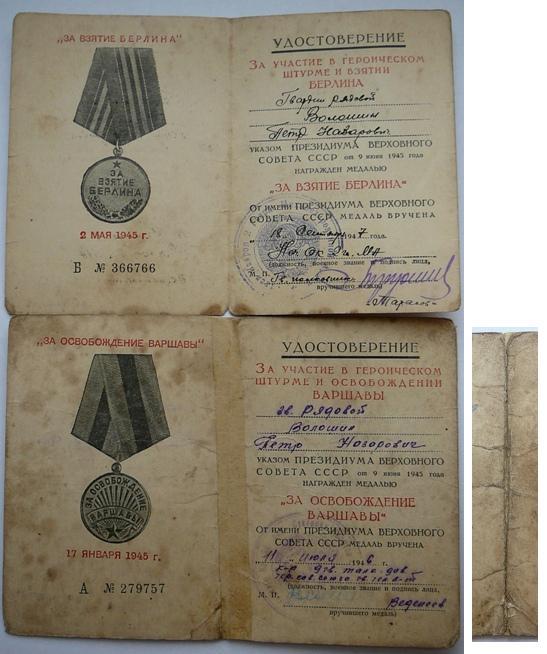 „ЗА ВЗЯТИЕ БЕРЛИНА"
ЗА
ВЗЯТИЕ
БЕРЛИНА
2 МАЯ 1945 г.
Б № 366766
УДОСТОВЕРЕНИЕ
ЗА УЧАСТИЕ В ГЕРОИЧЕСКОМ
ШТУРМЕ И ВЗЯТИИ
БЕРЛИНА
Гвардии рядовой
Волошин
Петр Назарович
УКАЗОМ ПРЕЗИДИУМА ВЕРХОВНОГО
СОВЕТА СССР от 9 июня 1945 года
НАГРАЖДЕН МЕДАЛЬЮ
„ЗА ВЗЯТИЕ БЕРЛИНА"
ОТ ИМЕНИ ПРЕЗИДИУМА ВЕРХОВНОГО
СОВЕТА СССР МЕДАЛЬ ВРУЧЕНА
18 1947 года.
(должность, военное звание и подпись лица,
М. П.
вручившего медаль)
„ЗА ОСВОБОЖДЕНИЕ ВАРШАВЫ"
ЗА ОСВОБОЖДЕНИЕ
ВАРШАВЫ
17 ЯНВАРЯ 1945 г.
А № 279757
УДОСТОВЕРЕНИЕ
ЗА УЧАСТИЕ В ГЕРОИЧЕСКОМ
ШТУРМЕ И ОСВОБОЖДЕНИИ
ВАРШАВЫ
гв. Рядовой
Волошин
Петр Назарович
УКАЗОМ ПРЕЗИДИУМА ВЕРХОВНОГО
СОВЕТА СССР от 9 июня 1945 года
НАГРАЖДЕН МЕДАЛЬЮ
„ЗА ОСВОБОЖДЕНИЕ
ВАРШАВЫ"
ОТ ИМЕНИ ПРЕЗИДИУМА ВЕРХОВНОГО
СОВЕТА СССР МЕДАЛЬ ВРУЧЕНА
11 июля 1946 г.
(должность, военное звание и подпись лица,
М. П.
Веденеев
вручившего медаль)